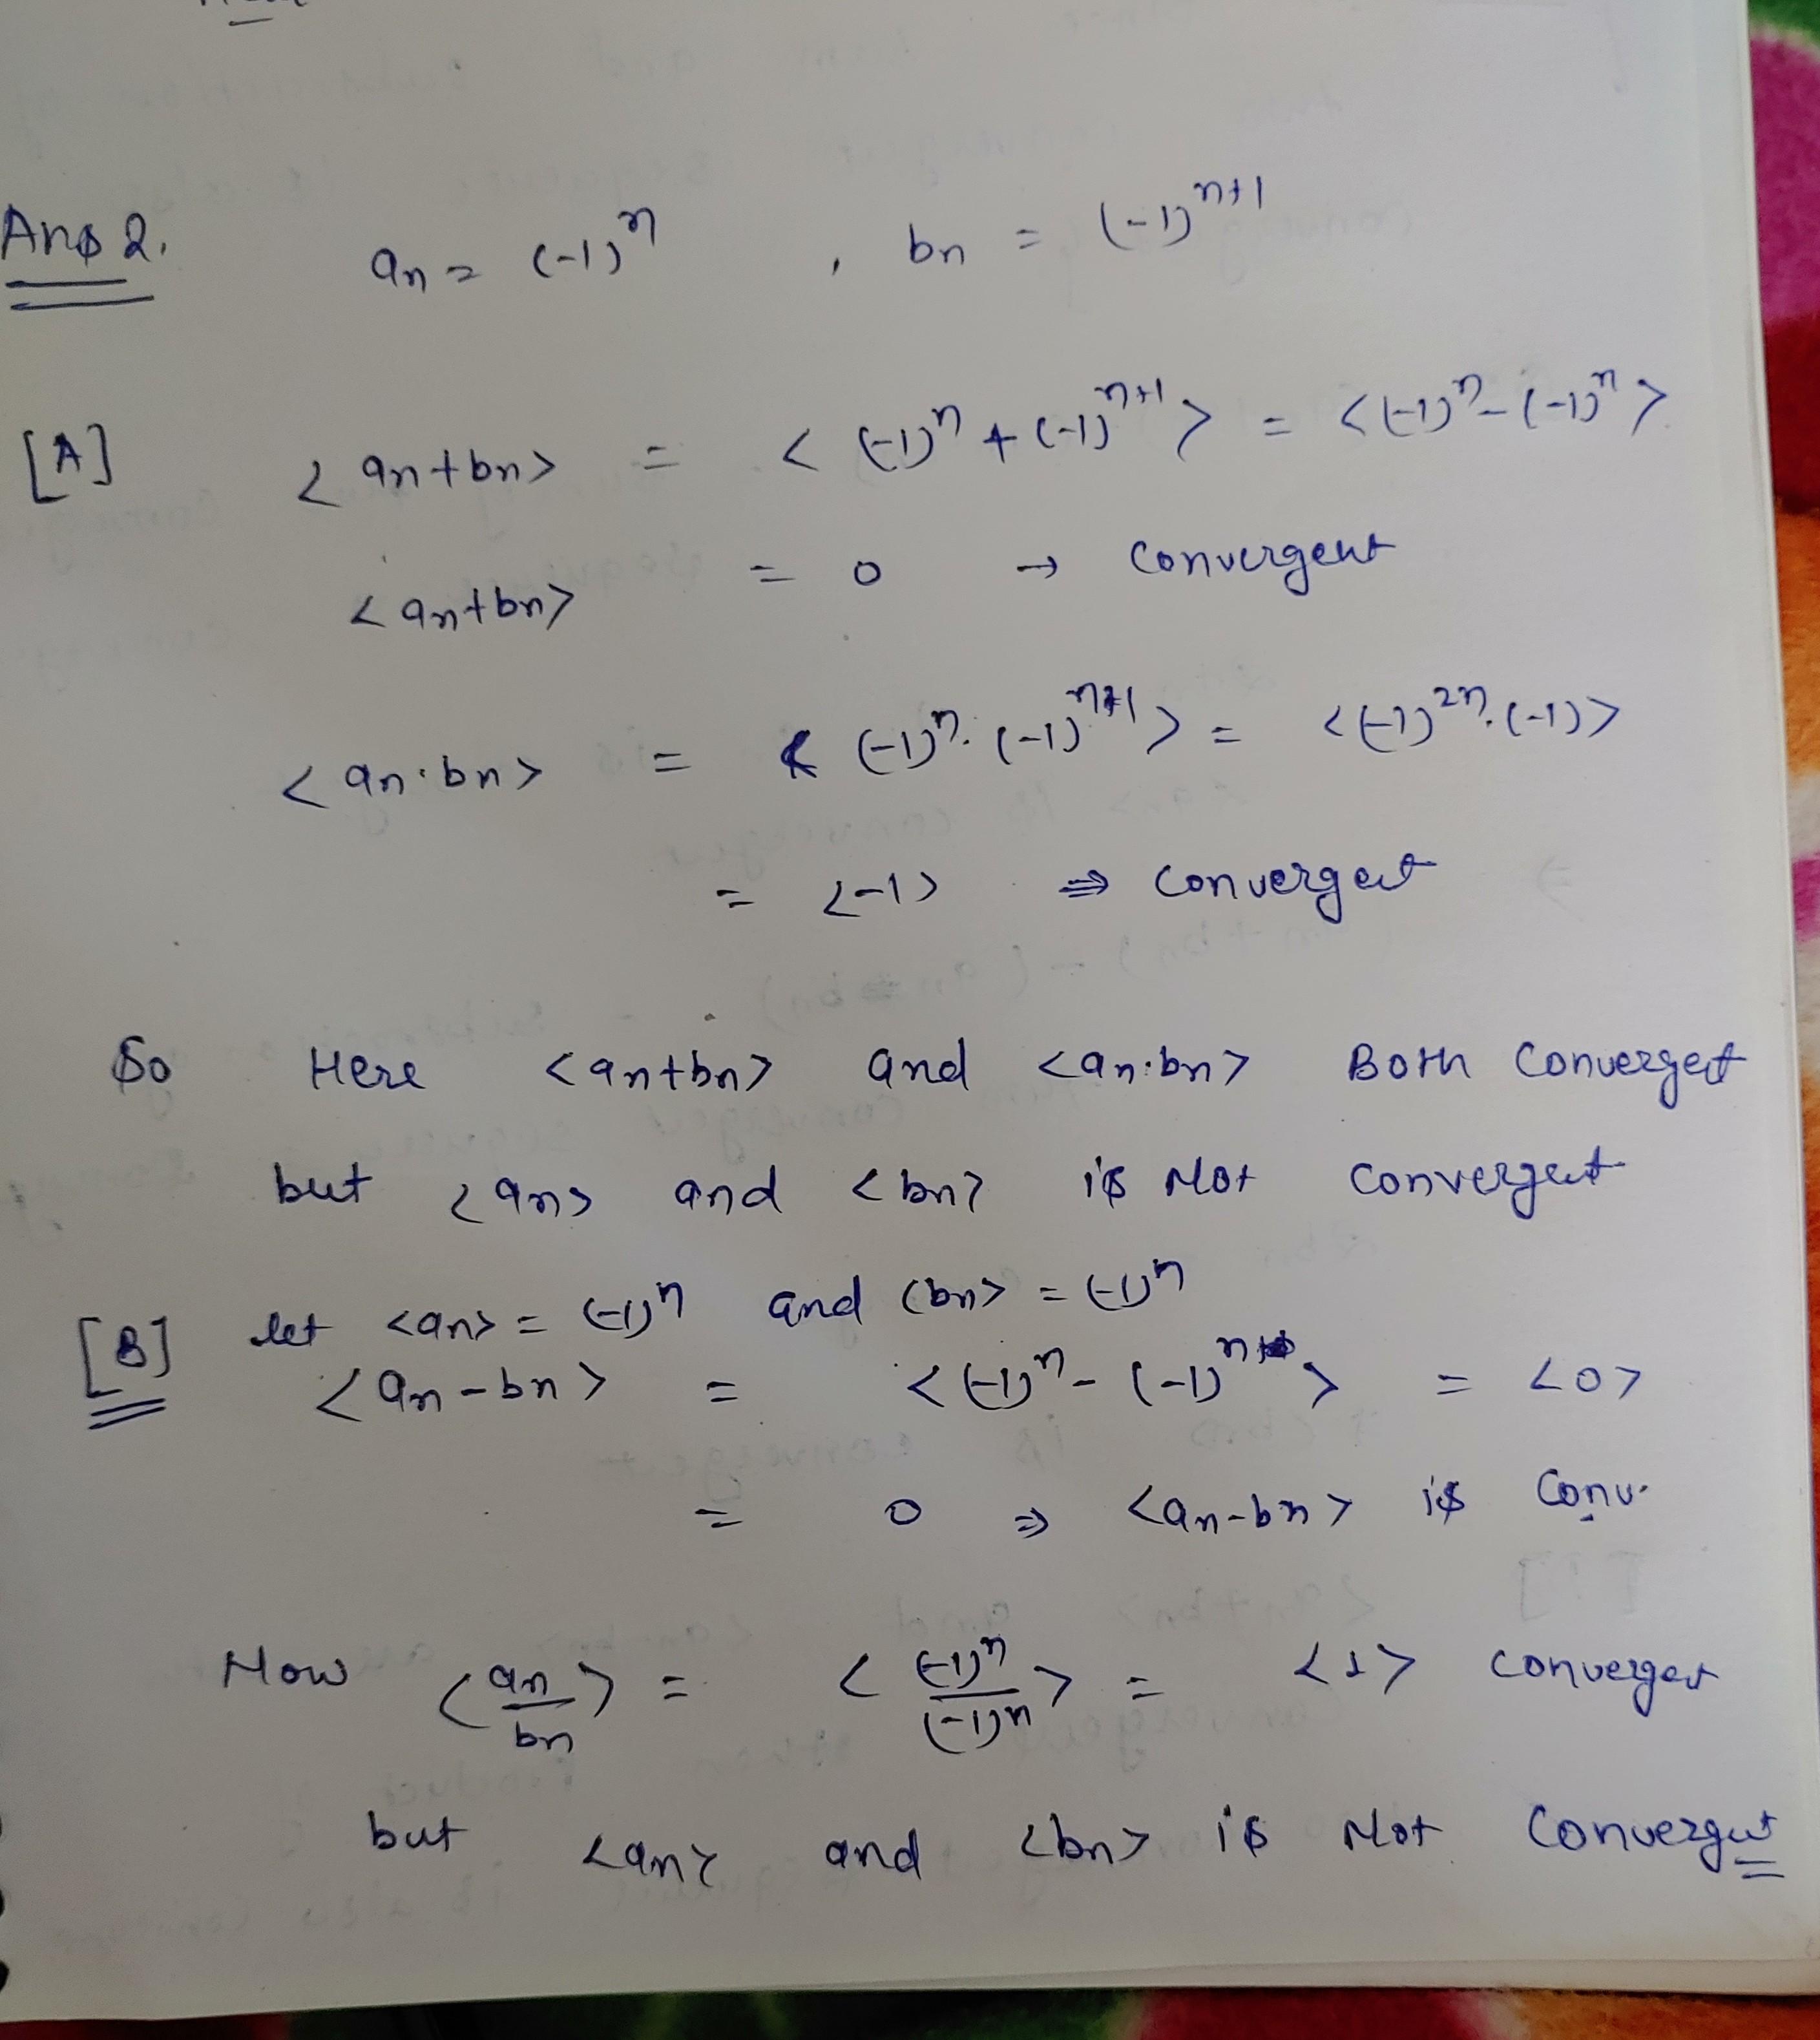 Ans 2. an = (-1)^n , bn = (-1)^{n+1}
[A] <an+bn> = <(-1)^n + (-1)^{n+1}> = <(-1)^n - (-1)^n>
<an+bn> = 0 → Convergent
<an·bn> = <(-1)^n · (-1)^{n+1}> = <(-1)^{2n} · (-1)>
= <-1> ⇒ Convergent
So Here <an+bn> and <an·bn> Both Convergent
but <an> and <bn> is Not Convergent
[B] let <an> = (-1)^n and <bn> = (-1)^n
<an-bn> = <(-1)^n - (-1)^n> = <0>
= 0 ⇒ <an-bn> is Conv.
Now <an/bn> = <(-1)^n/(-1)^n> = <1> Converges
but <an> and <bn> is Not Convergent